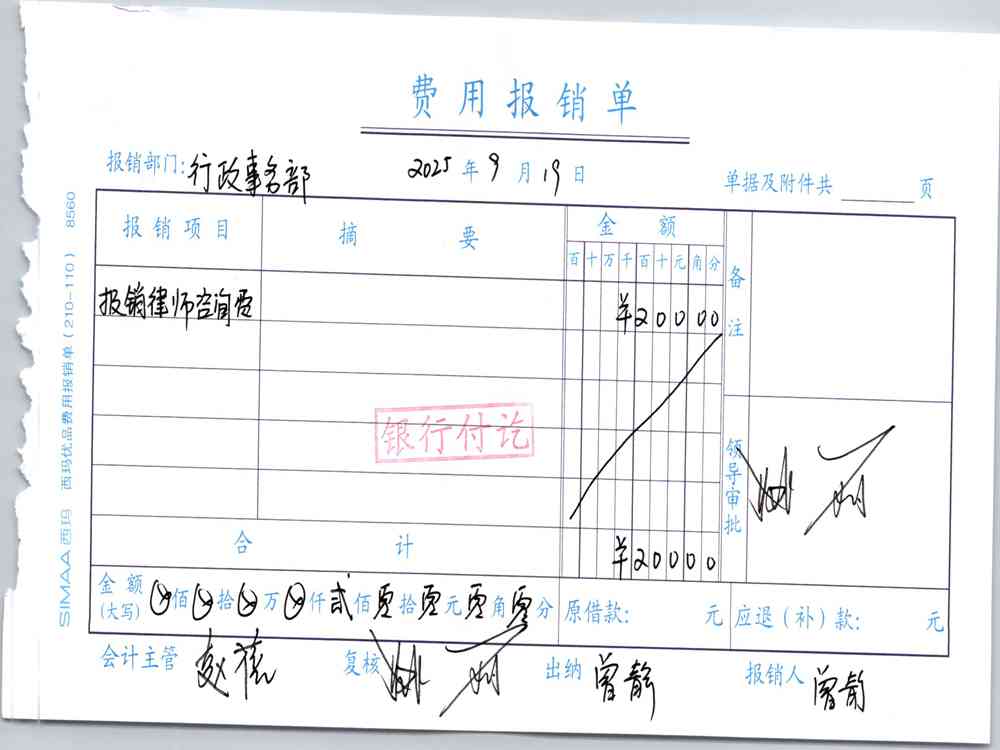 费用报销单
报销部门：行政事务部 2025年9月19日 单据及附件共 页
报销项目 摘要 金额 备注
百十万千百十元角分
报销律师咨询费 ¥20000
银行付讫
领导审批
合计 ¥20000
金额(大写) 佰 拾 万 仟贰佰零拾零元零角零分 原借款: 元 应退(补)款: 元
会计主管 复核 出纳 曾静 报销人 曾静
SIMAA 西玛 西玛优品费用报销单(210-110) 8560